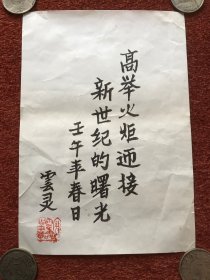 高举火炬迎接
新世纪的曙光
壬午年春日
雲灵